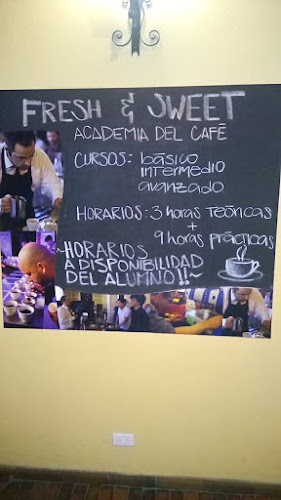 FRESH & SWEET
ACADEMIA DEL CAFÉ
CURSOS: básico
intermedio
avanzado
HORARIOS: 3 horas Teóricas
+
9 horas prácticas
~HORARIOS
A DISPONIBILIDAD
DEL ALUMNO!!~